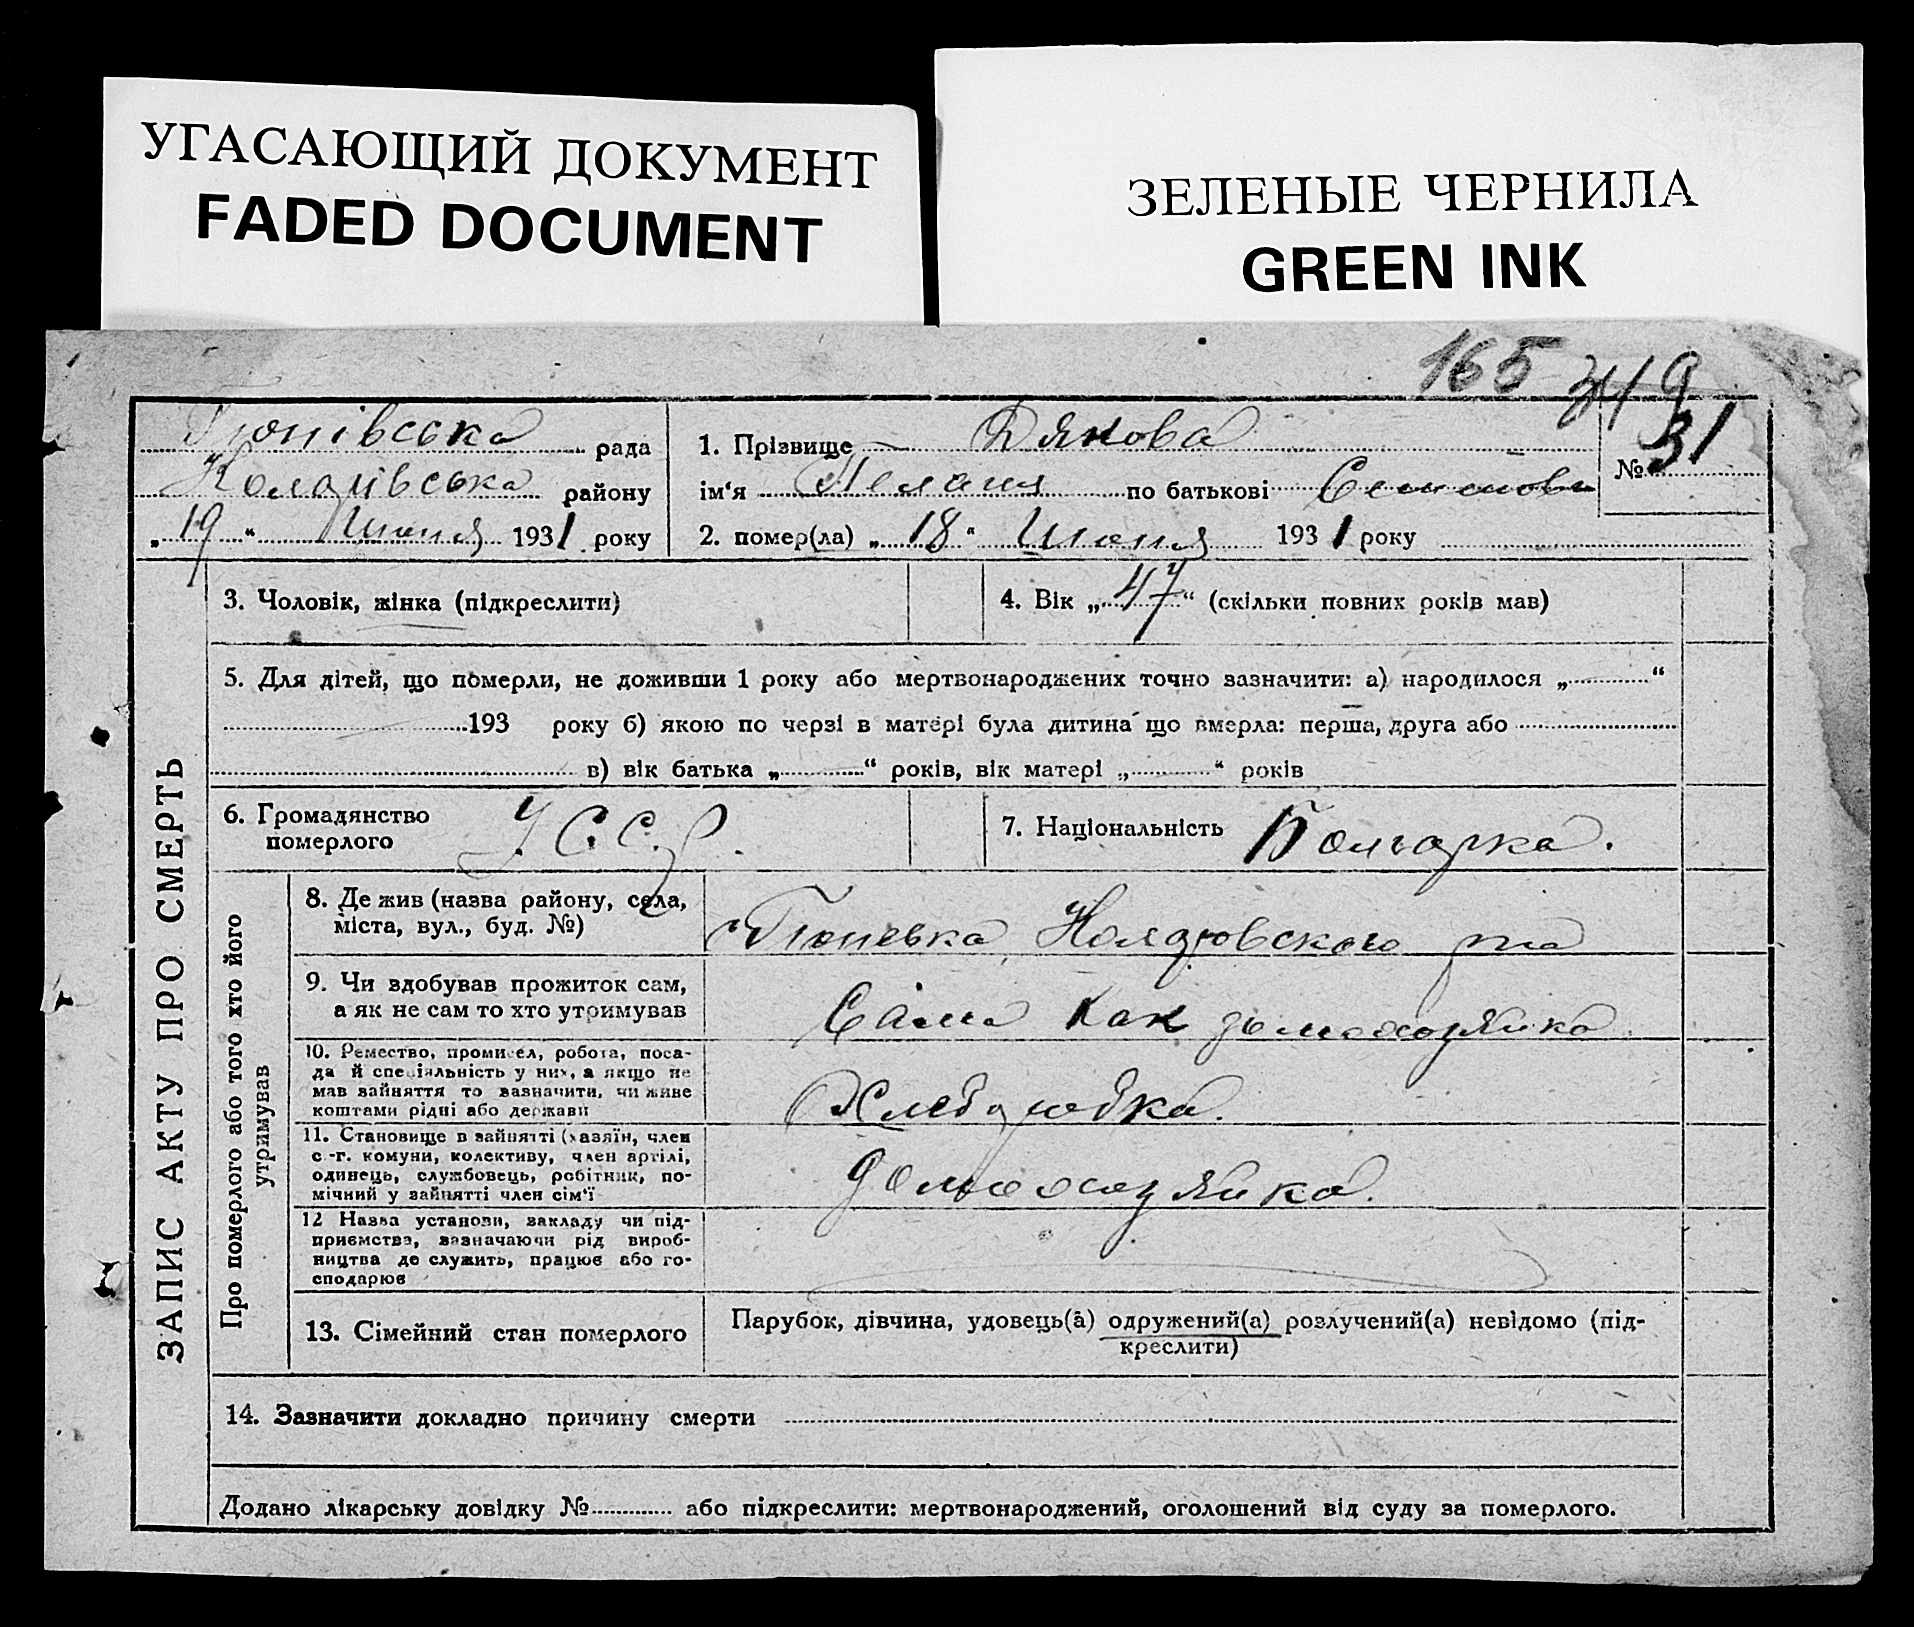 УГАСАЮЩИЙ ДОКУМЕНТ
FADED DOCUMENT
ЗЕЛЕНЫЕ ЧЕРНИЛА
GREEN INK
165 319
Тюпівська рада
Коларівська району
„19“ Июня 1931 року
1. Прізвище Дякова
ім‘я Пелагия по батькові
№ 31
2. помер(ла) „18“ Июня 1931 року
ЗАПИС АКТУ ПРО СМЕРТЬ
3. Чоловік, жінка (підкреслити)
4. Вік „47“ (скільки повних років мав)
5. Для дітей, що померли, не доживши 1 року або мертвонароджених точно зазначити: а) народилося „ “
193 року б) якою по черзі в матері була дитина що вмерла: перша, друга або
в) вік батька „ “ років, вік матері „ “ років
6. Громадянство
померлого У.С.С.Р.
7. Національність Болгарка.
Про померлого або того хто його
утримував
8. Де жив (назва району, села,
міста, вул., буд. №)
Тюпевка Коляровского р-на
9. Чи здобував прожиток сам,
а як не сам то хто утримував
Сама как домохозяйка
10. Ремество, промисел, робота, поса-
да й спеціяльність у них, а якщо не
мав зайняття то зазначити, чи живе
коштами рідні або держави
Хлеборобка.
11. Становище в зайнятті (хазяїн, член
с.-г. комуни, колективу, член артілі,
одинець, службовець, робітник, по-
мічний у зайнятті член сім‘ї
домохозяйка.
12 Назва установи, закладу чи під-
приємства, зазначаючи рід вироб-
ництва де служить, працює або го-
сподарює
13. Сімейний стан померлого
Парубок, дівчина, удовець(а) одружений(а) розлучений(а) невідомо (під-
креслити)
14. Зазначити докладно причину смерти
Додано лікарську довідку № або підкреслити: мертвонароджений, оголошений від суду за померлого.